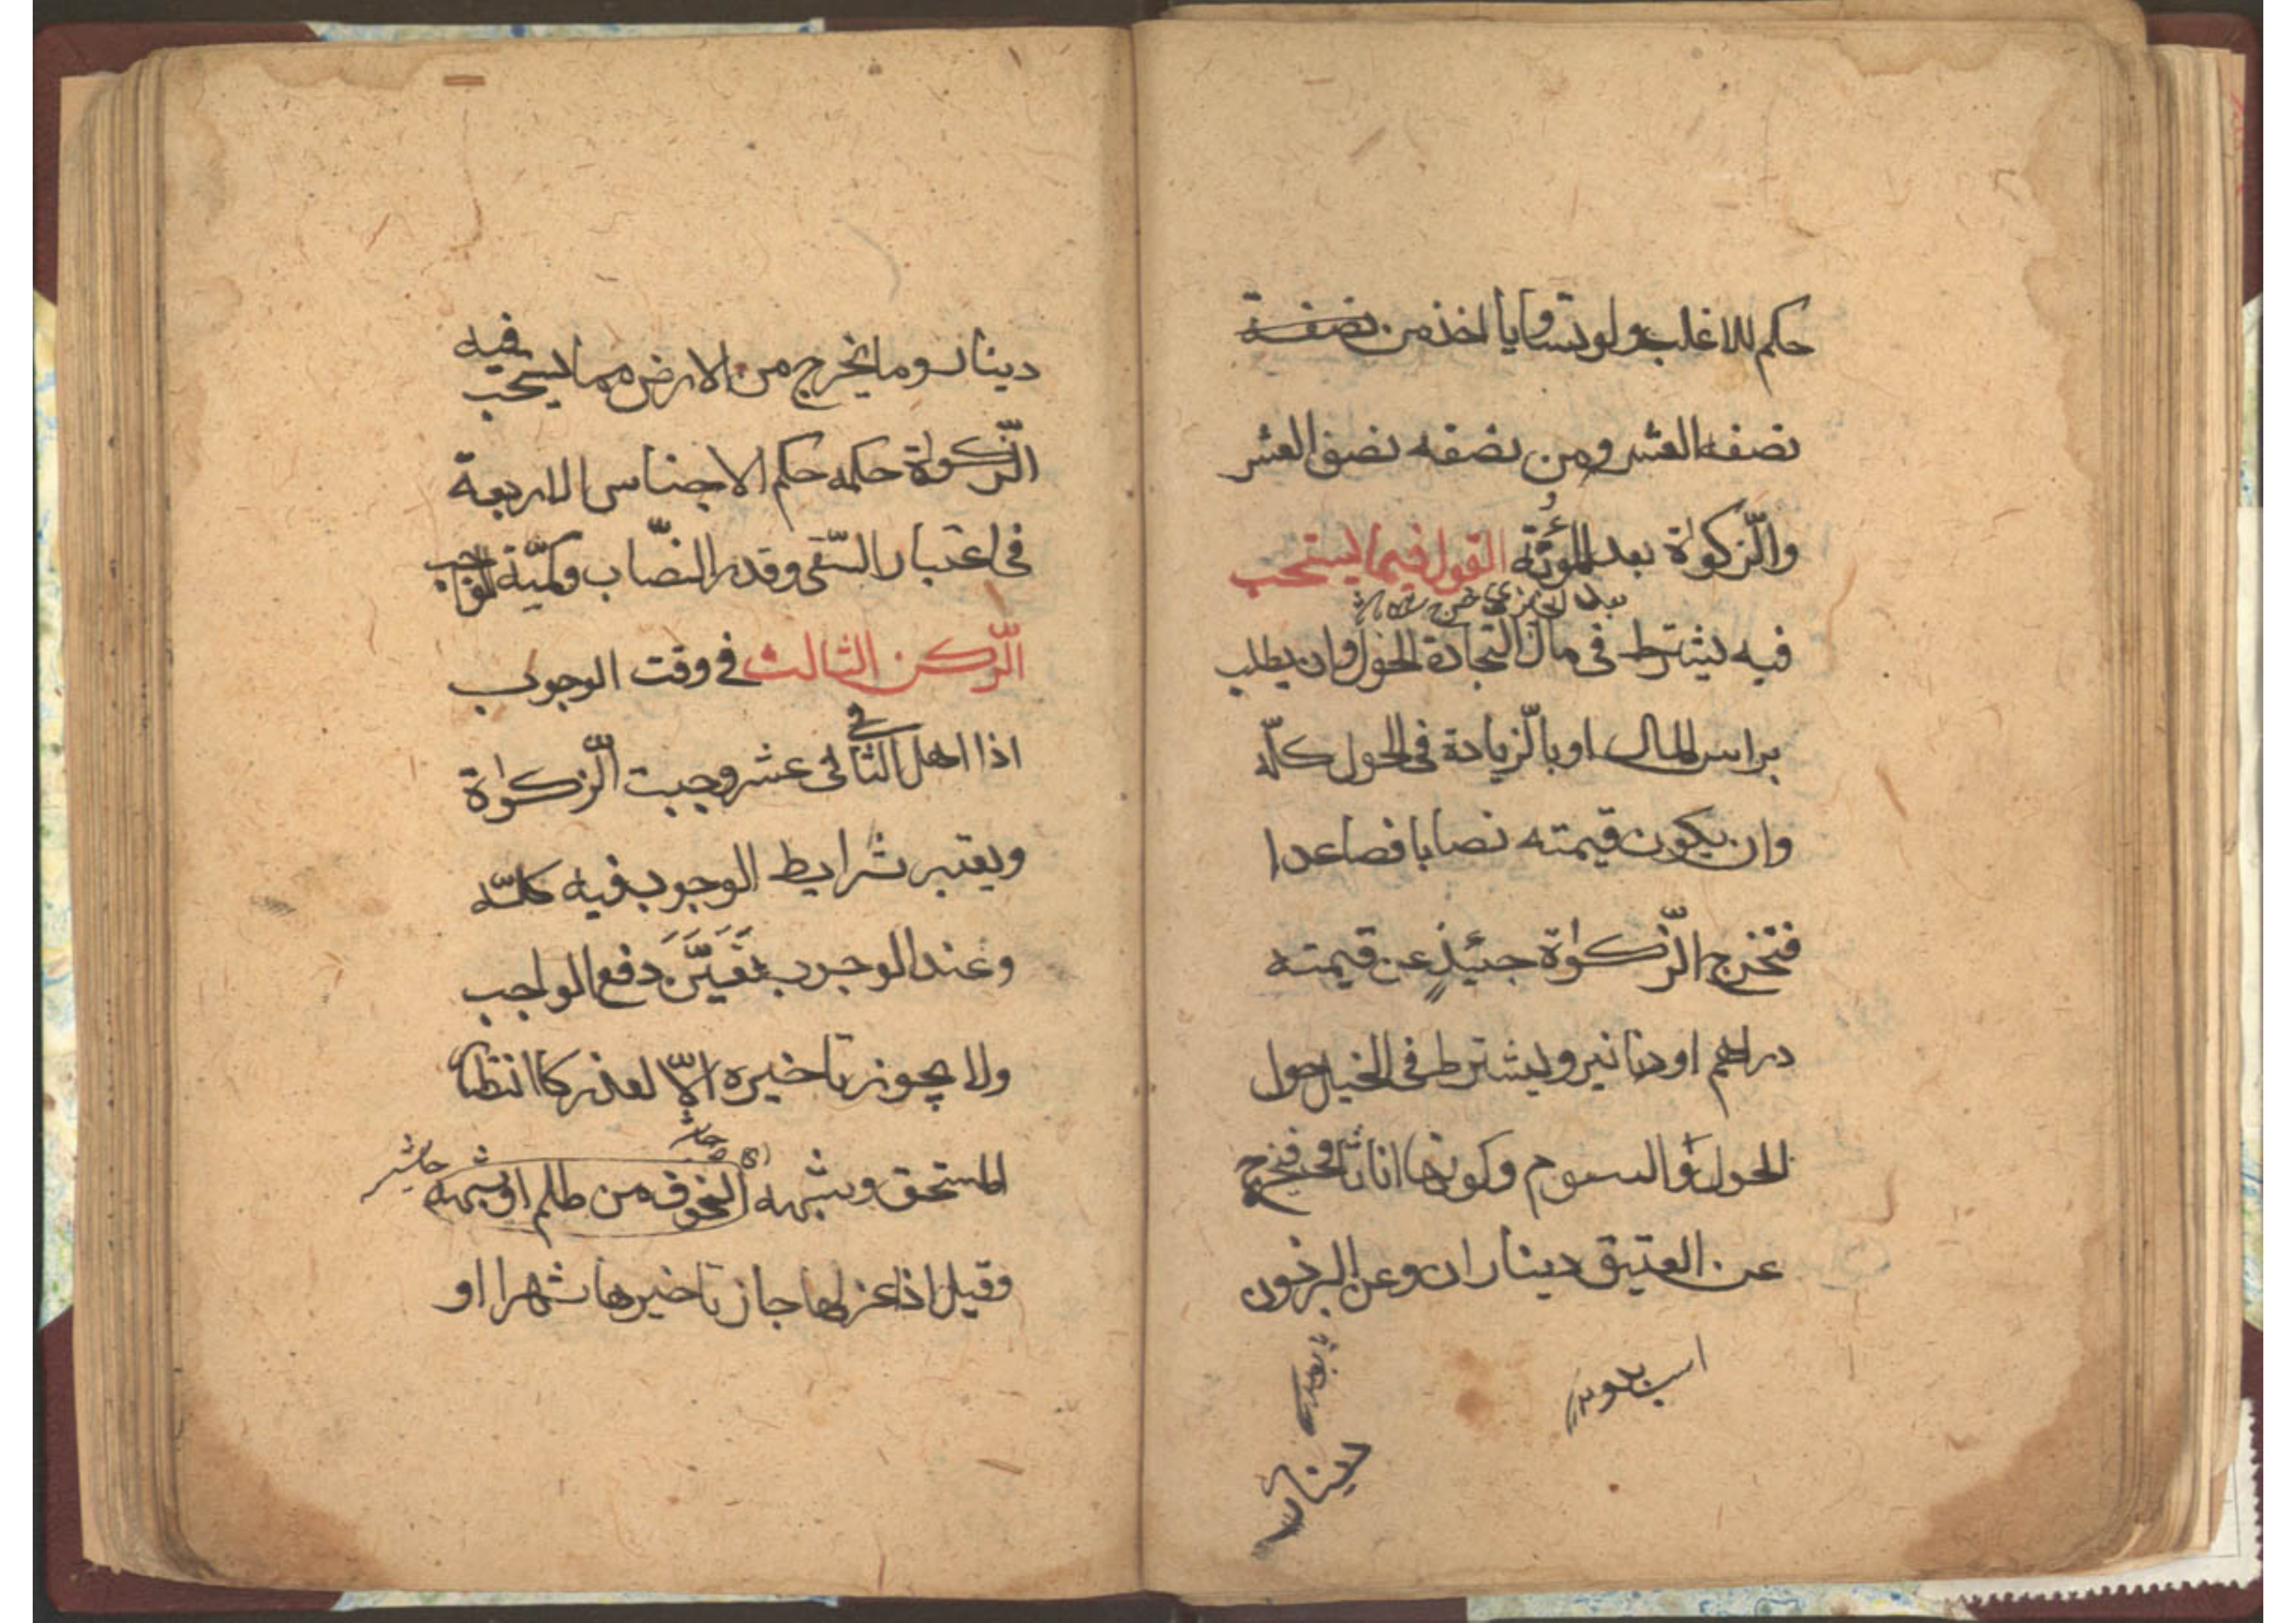 حكم للاغلب ولو تساويا اخذ من نصفه
نصفه العشر ومن نصفه نصف العشر
والزّكوٰة بعد المؤنة القول فيما يستحب
فيه يشترط فى مال التجارة الحول وان يطلب
براس المال او بالزّيادة فى الحول كلّه
وان يكون قيمته نصابا فصاعدا
فتخرج الزّكوٰة حينئذٍ عن قيمته
دراهم او دنانير ويشترط فى الخيل حول
الحول والسوم وكونها اناثا فيخرج
عن العتيق ديناران وعن البرذون
دينار
دينار وما يخرج من الارض مما يستحب فيه
الزّكوٰة حكمه حكم الاجناس الاربعة
فى اعتبار السّقى وقدر النصّاب وكميّة الواجب
الرّكن الثالث فى وقت الوجوب
اذا اهل الثانى عشر وجبت الزّكوٰة
ويعتبر شرايط الوجوب فيه كلّه
وعند الوجوب يَتَعَيَّنَ دفع الواجب
ولا يجوز تاخيره الّا لعذر كاانتظار
المستحق وشبهه الخوف من ظلم او شبهه
وقيل اذا عزلها جاز تاخيرها شهرا او